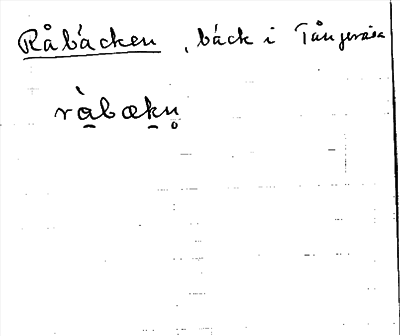 Råbäcken, bäck i Tångeråsa
ràbækn̥